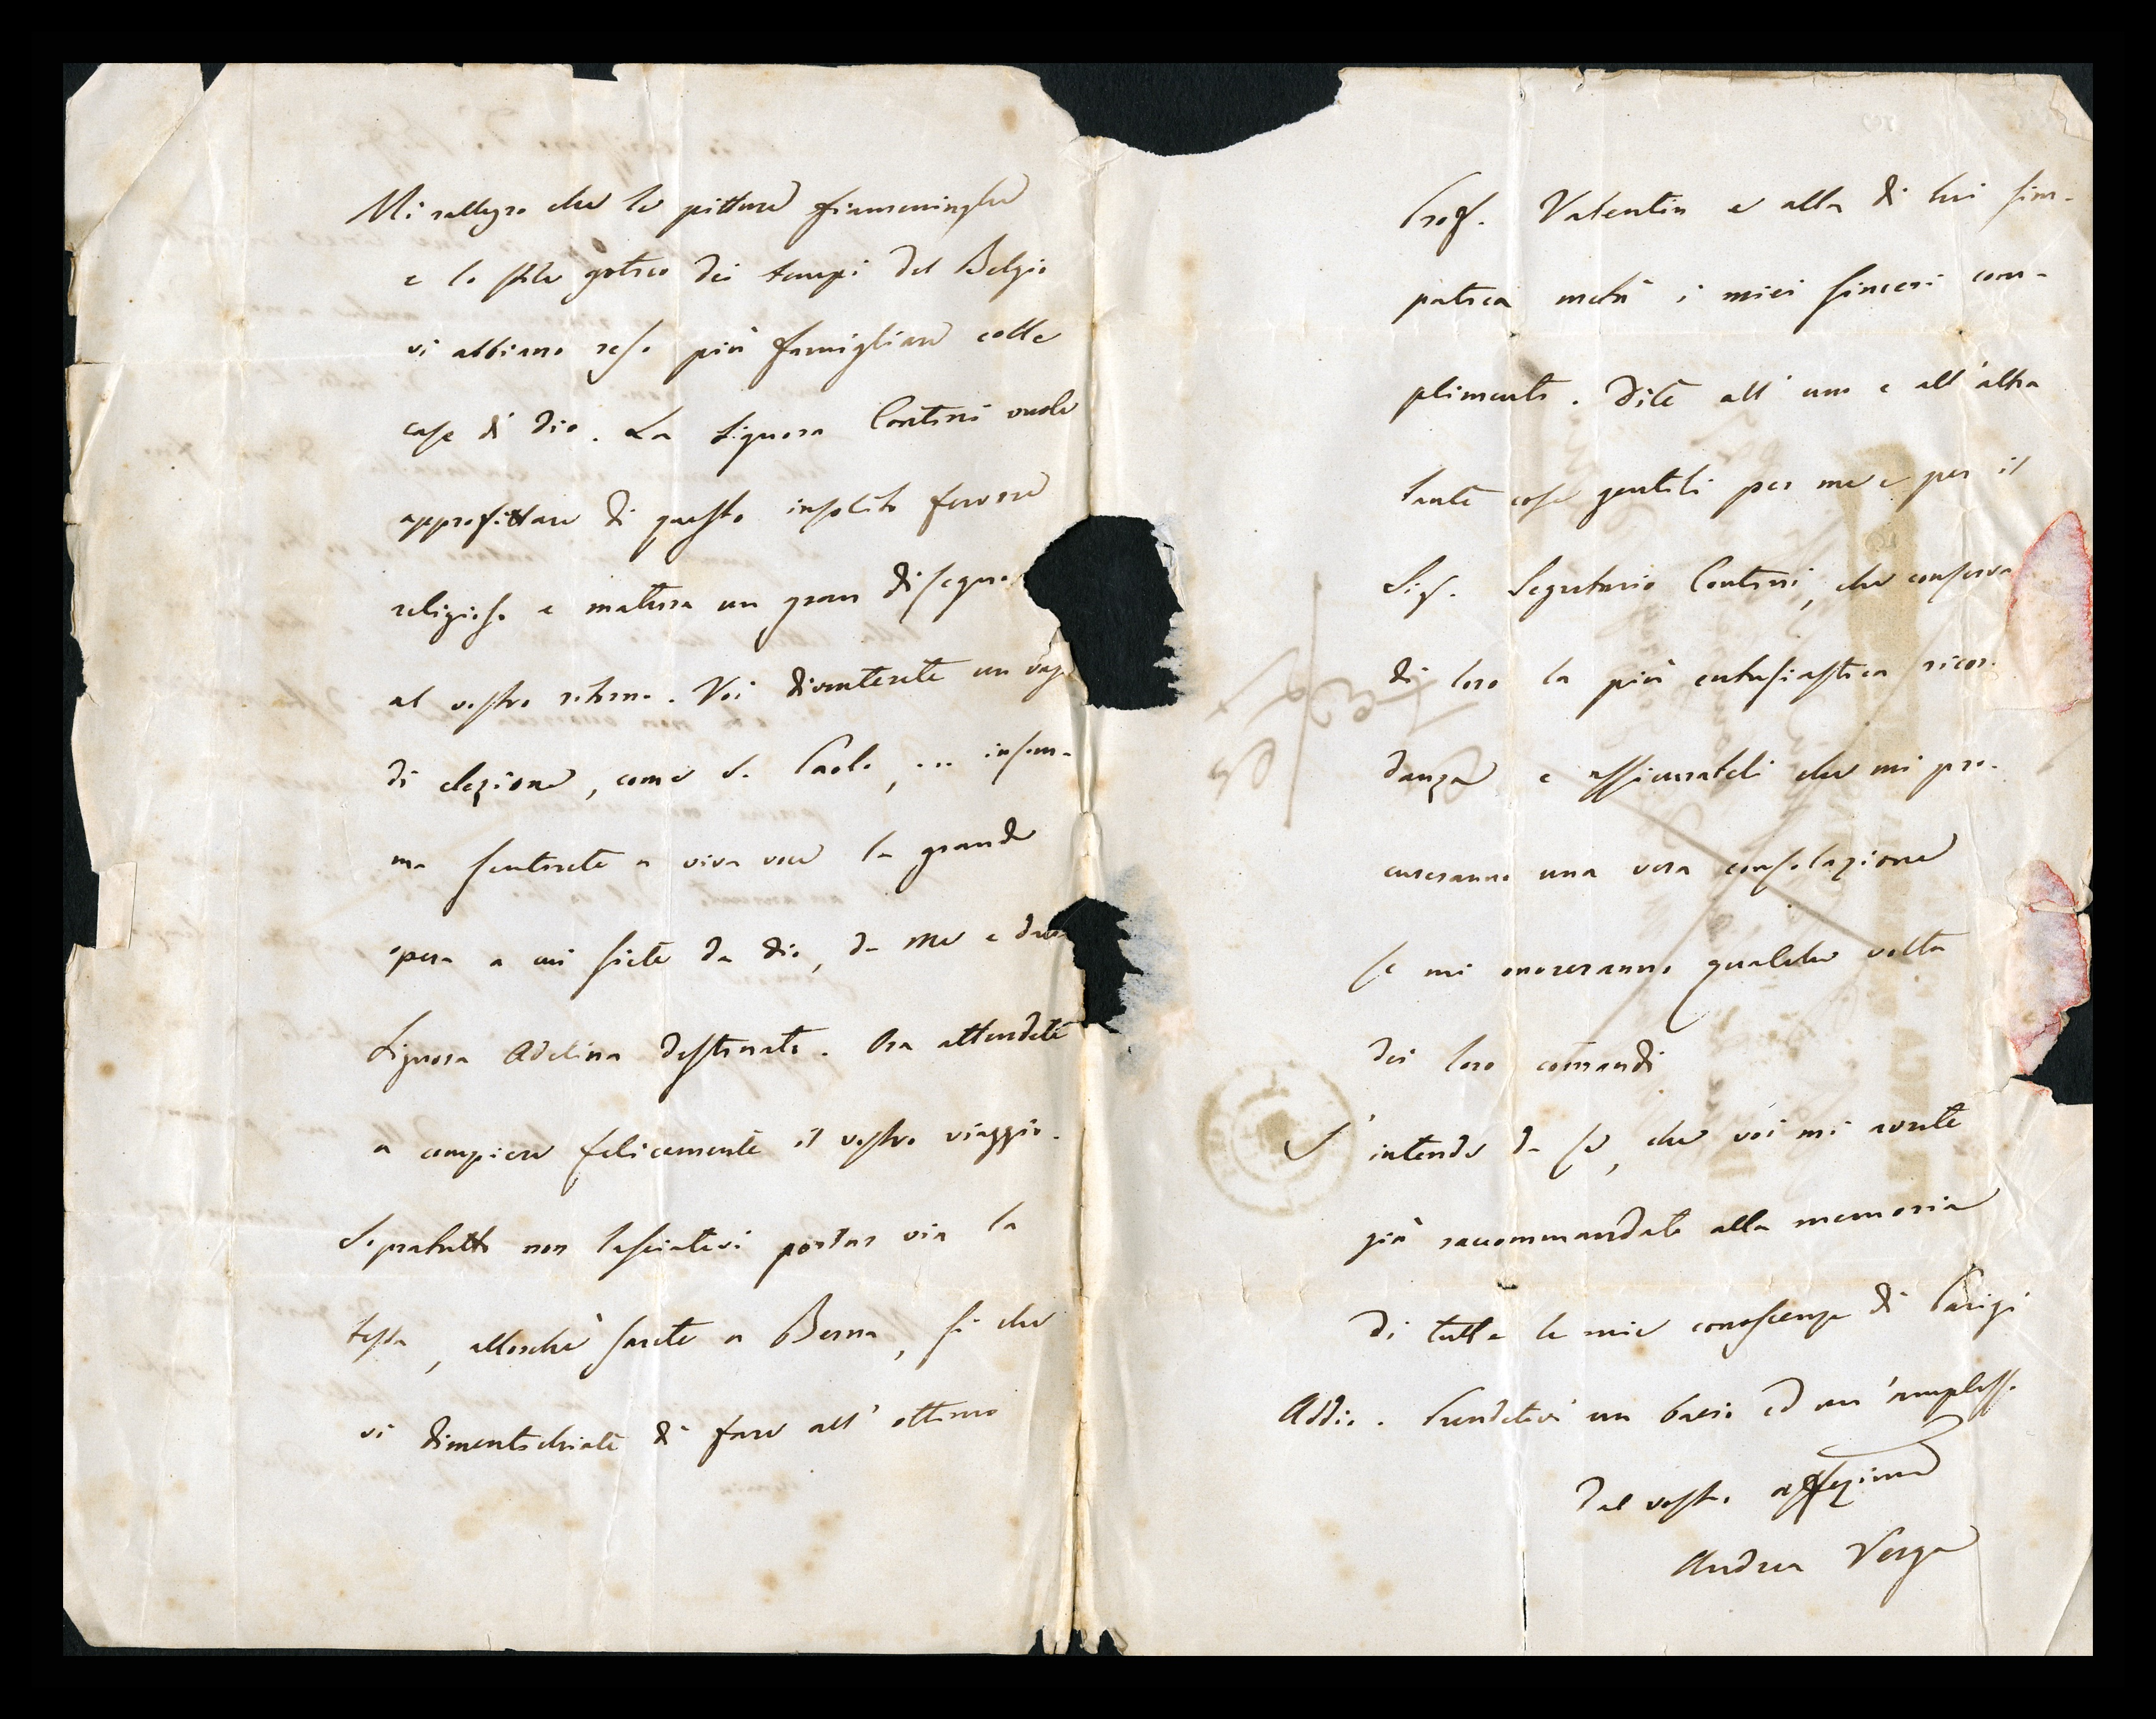 Mi rallegro che le pitture fiamminghe
e lo stile gotico dei tempi del Belgio
vi abbiano reso più famigliare colle
case di Dio. La Signora Contini vuole
approfittare di questo insolito fervore
religioso e matura un gran disegno
al vostro ritorno. Voi diventerete un vaso
di elezione, come S. Paolo, ... insom-
ma sentirete a viva voce la grande
opera a cui siete da Dio, da me e dalla
Signora Adelina destinato. Ora attendete
a compiere felicemente il vostro viaggio.
Sopratutto non lasciatevi portar via la
testa, allorchè sarete a Berna, sì che
vi dimentichiate di fare all' ottimo
Prof. Valentin e alla di lui sim-
patica metà i miei sinceri com-
plimenti. Dite all' uno e all' altra
tante cose gentili per me e per il
Sig. Segretario Contini, che conserva
di loro la più entusiastica ricor-
danza e assicurateli che mi pro-
cureranno una vera consolazione
se mi onoreranno qualche volta
dei loro comandi
S' intende da se, che voi mi avrete
già raccommandato alla memoria
di tutte le mie conoscenze di Parigi
Addio. Prendetevi un bacio ed un' amplesso
dal vostro affezimo
Andrea Verga